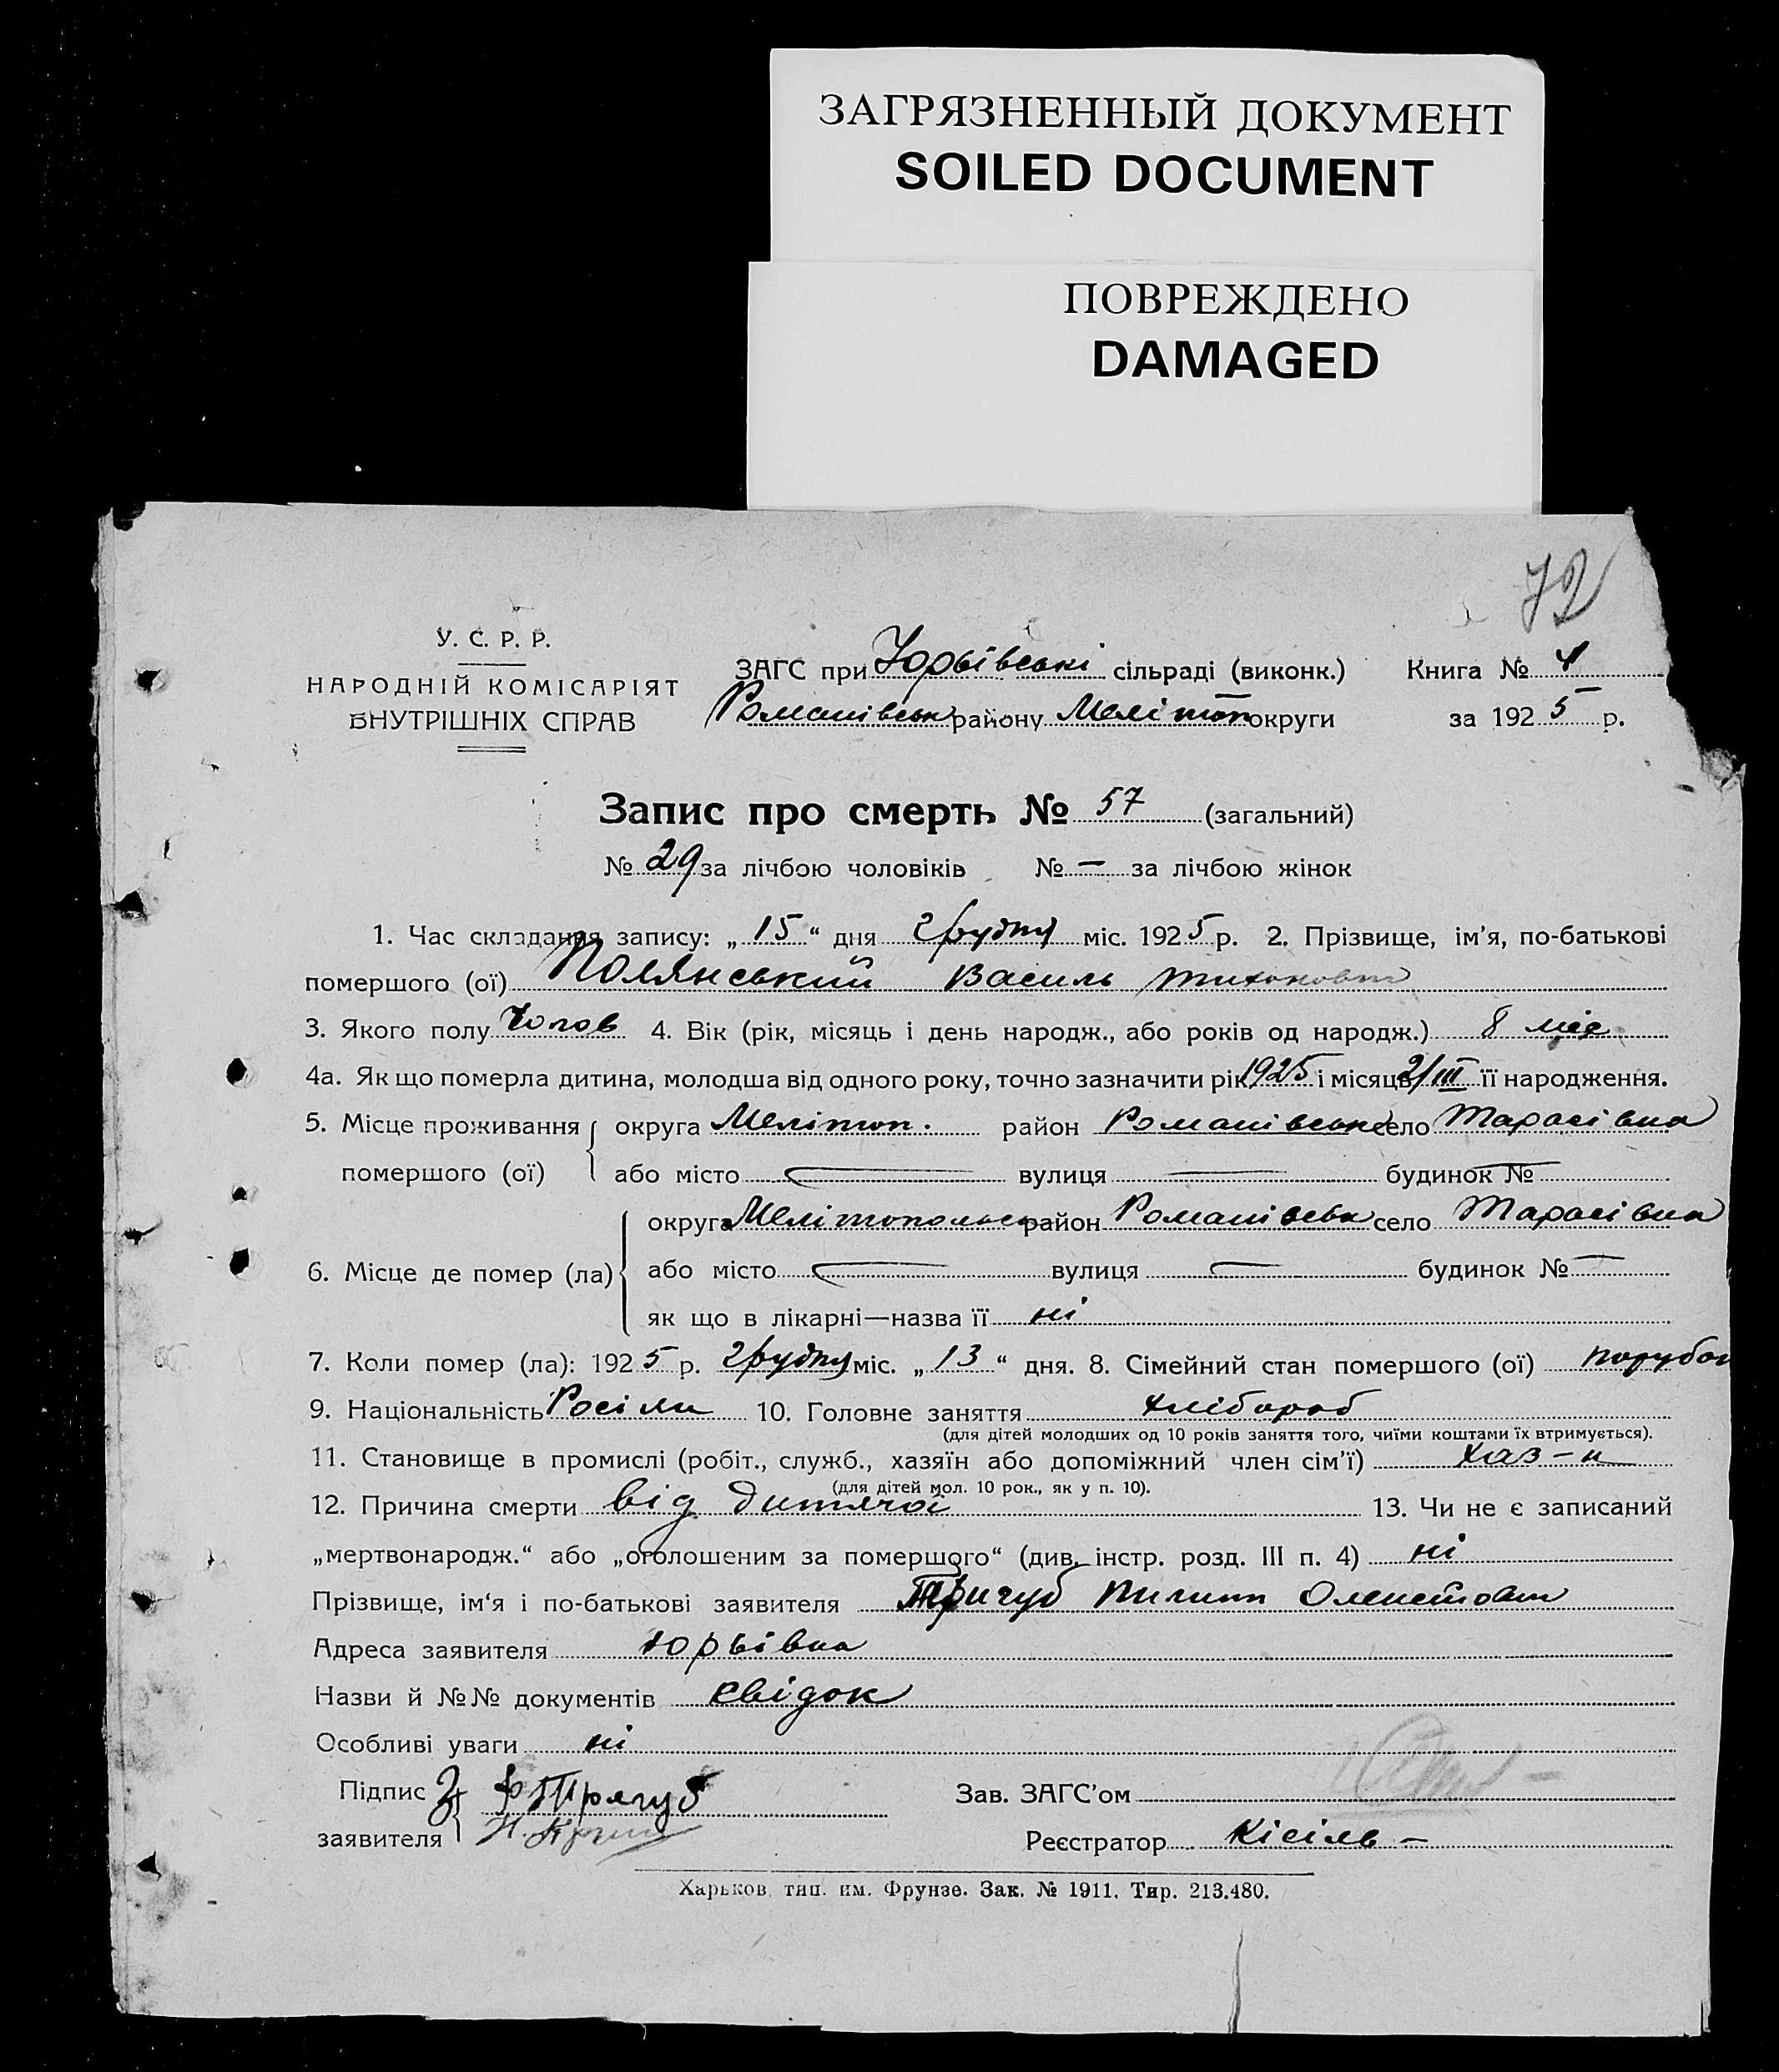 ЗАГРЯЗНЕННЫЙ ДОКУМЕНТ
SOILED DOCUMENT
ПОВРЕЖДЕНО
DAMAGED
72
У. С. Р. Р.
НАРОДНІЙ КОМІСАРІЯТ
ВНУТРІШНІХ СПРАВ
ЗАГС при Юрьівські сільраді (виконк.) Книга №
Романівськ району Мелітоп округи за 1925 р.
Запис про смерть № 57 (загальний)
№ 29 за лічбою чоловіків № — за лічбою жінок
1. Час складання запису: „15“ дня грудня міс. 1925 р. 2. Прізвище, ім’я, по-батькові
помершого (ої) Полянський Василь Тихонович
3. Якого полу Чолов 4. Вік (рік, місяць і день народж., або років од народж.) 8 міс
4а. Як що померла дитина, молодша від одного року, точно зазначити рік 1925 і місяць 2/III її народження.
5. Місце проживання помершого (ої) округа Мелітоп. район Романівськ село Тарасівка
або місто — вулиця — будинок № —
6. Місце де помер (ла) округа Мелітопольськ район Романівськ село Тарасівка
або місто — вулиця — будинок № —
як що в лікарні—назва її ні
7. Коли помер (ла): 1925 р. грудня міс. „13“ дня. 8. Сімейний стан помершого (ої) парубок
9. Національність 10. Головне заняття хлібороб
(для дітей молодших од 10 років заняття того, чиїми коштами їх втримується).
11. Становище в промислі (робіт., служб., хазяїн або допоміжний член сім’ї) хаз-н
(для дітей мол. 10 рок., як у п. 10).
12. Причина смерти від дитячої 13. Чи не є записаний
„мертвонародж.“ або „оголошеним за померщого“ (див. інстр. розд. III п. 4) ні
Прізвище, ім‘я і по-батькові заявителя Тригуб Пилип
Адреса заявителя Юрьівка
Назви й №№ документів свідок
Особливі уваги ні
Підпис заявителя Тригуб
Зав. ЗАГС’ом
Реєстратор Кісіль —
Харьков, тип. им. Фрунзе. Зак. № 1911. Тир. 213.480.